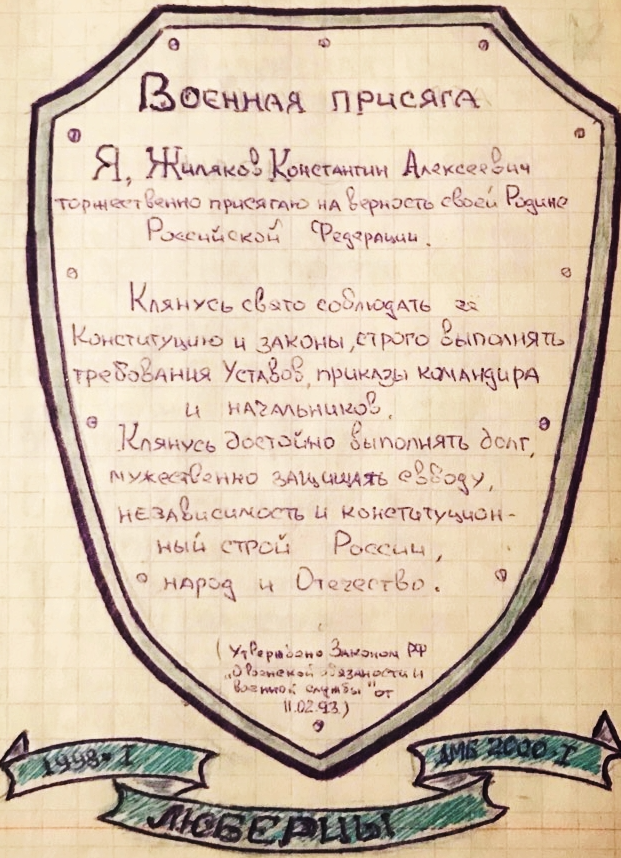 Военная присяга
Я, Жиляков Константин Алексеевич
торжественно присягаю на верность своей Родине
Российской Федерации.
Клянусь свято соблюдать ее
Конституцию и законы, строго выполнять
требования Уставов, приказы командира
и начальников.
Клянусь достойно выполнять долг,
мужественно защищать свбоду,
независимость и конституцион-
ный строй России,
народ и Отечество.
(Утверждено Законом РФ
„О воинской обязаности и
военной службы" от
11.02.93.)
1998. I
ДМБ 2000. I
ЛЮБЕРЦЫ